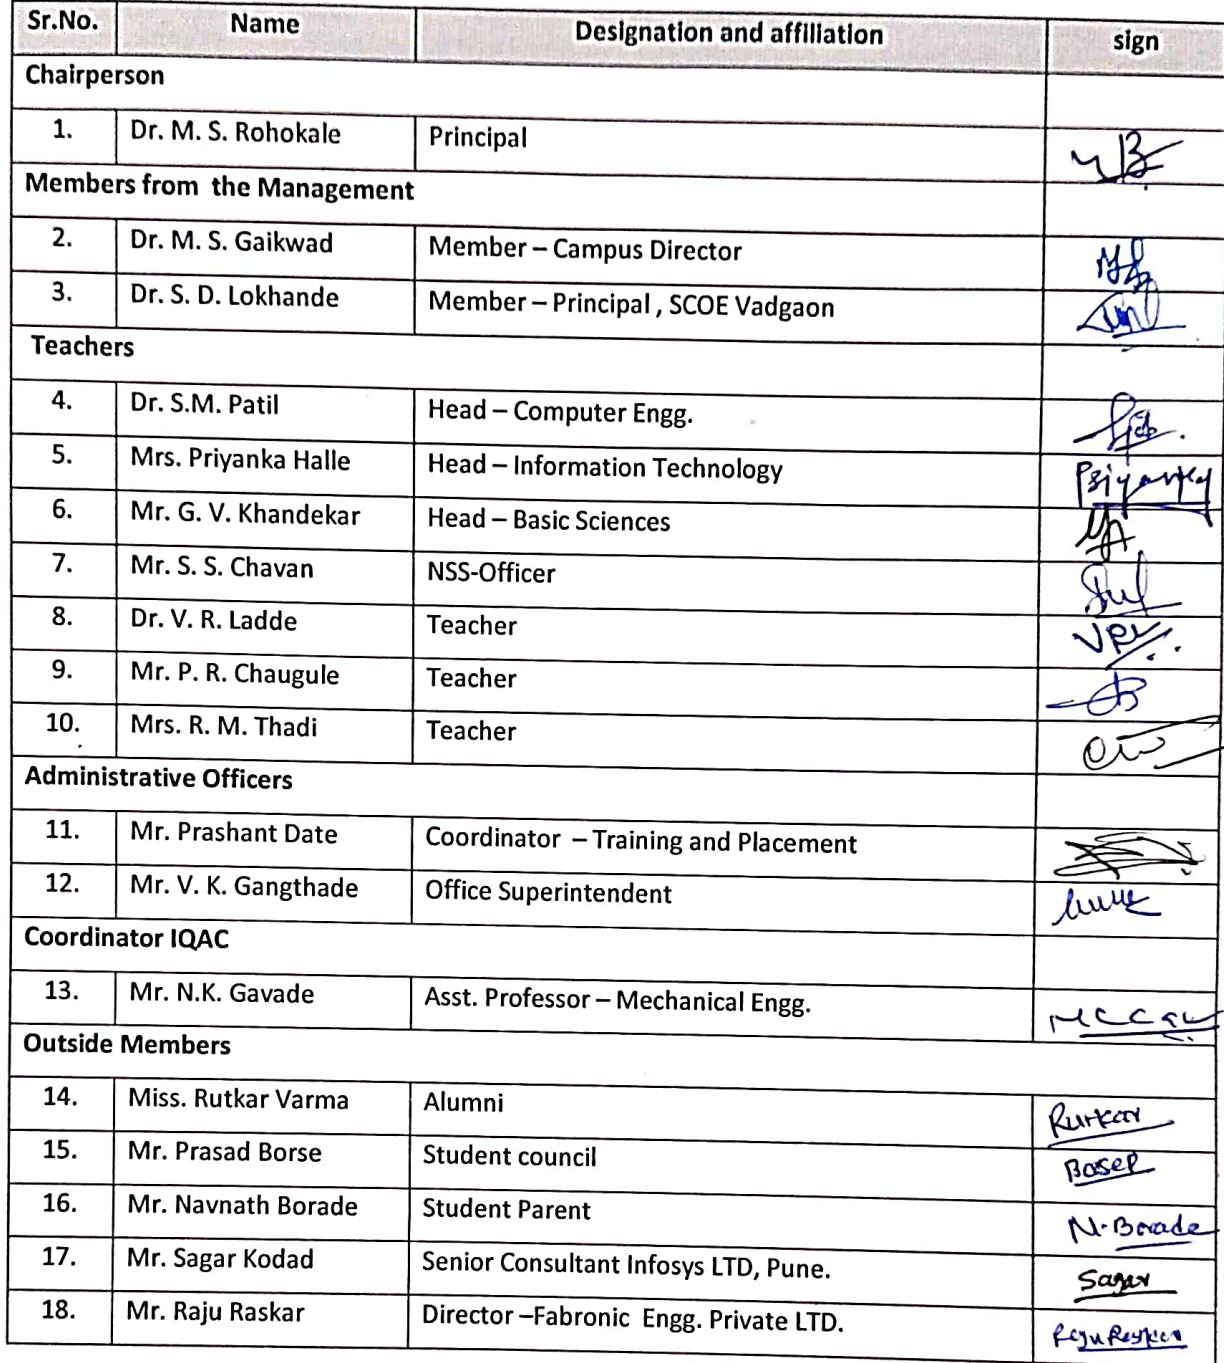 Sr.No. Name Designation and affiliation sign
Chairperson
1. Dr. M. S. Rohokale Principal
Members from the Management
2. Dr. M. S. Gaikwad Member – Campus Director
3. Dr. S. D. Lokhande Member – Principal , SCOE Vadgaon
Teachers
4. Dr. S.M. Patil Head – Computer Engg.
5. Mrs. Priyanka Halle Head – Information Technology
6. Mr. G. V. Khandekar Head – Basic Sciences
7. Mr. S. S. Chavan NSS-Officer
8. Dr. V. R. Ladde Teacher
9. Mr. P. R. Chaugule Teacher
10. Mrs. R. M. Thadi Teacher
Administrative Officers
11. Mr. Prashant Date Coordinator – Training and Placement
12. Mr. V. K. Gangthade Office Superintendent
Coordinator IQAC
13. Mr. N.K. Gavade Asst. Professor – Mechanical Engg.
Outside Members
14. Miss. Rutkar Varma Alumni
15. Mr. Prasad Borse Student council
16. Mr. Navnath Borade Student Parent N. Borade
17. Mr. Sagar Kodad Senior Consultant Infosys LTD, Pune. Sagar
18. Mr. Raju Raskar Director –Fabronic Engg. Private LTD.